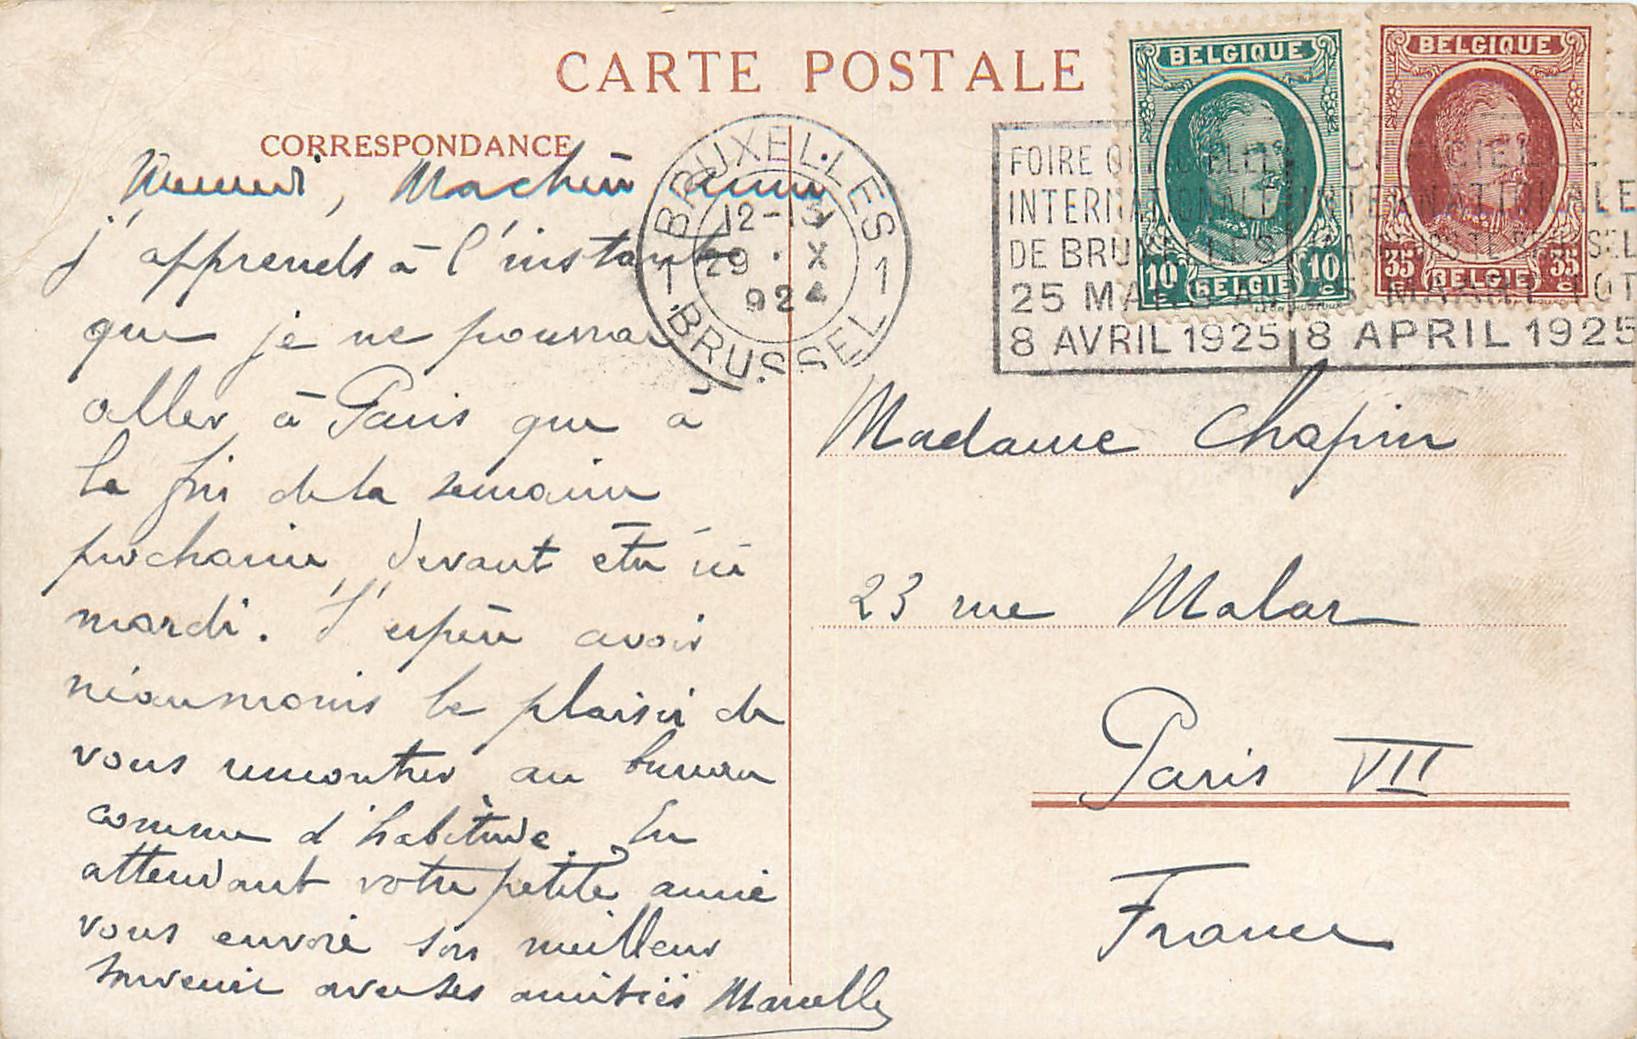 CARTE POSTALE
CORRESPONDANCE
BELGIQUE
10c 10c
BELGIË
BELGIQUE
35c 35c
BELGIË
BRUXELLES
12-15
29 · X
1 1
924
BRUSSEL
FOIRE OFFICIELLE
INTERNATIONALE
DE BRUXELLES
25 MA
8 AVRIL 1925
OFFICIEELE
INTERNATIONALE
8 APRIL 1925
Mercredi, Ma chère amie
j'apprends à l'instant
que je ne pourrai
aller à Paris que à
la fin de la semaine
prochaine, devant être ici
mardi. J'espère avoir
néanmoins le plaisir de
vous rencontrer au bureau
comme d'habitude. En
attendant votre petite amie
vous envoie son meilleur
souvenir avec ses amitiés Marcelle
Madame Chapin
23 rue Malar
Paris VII
France